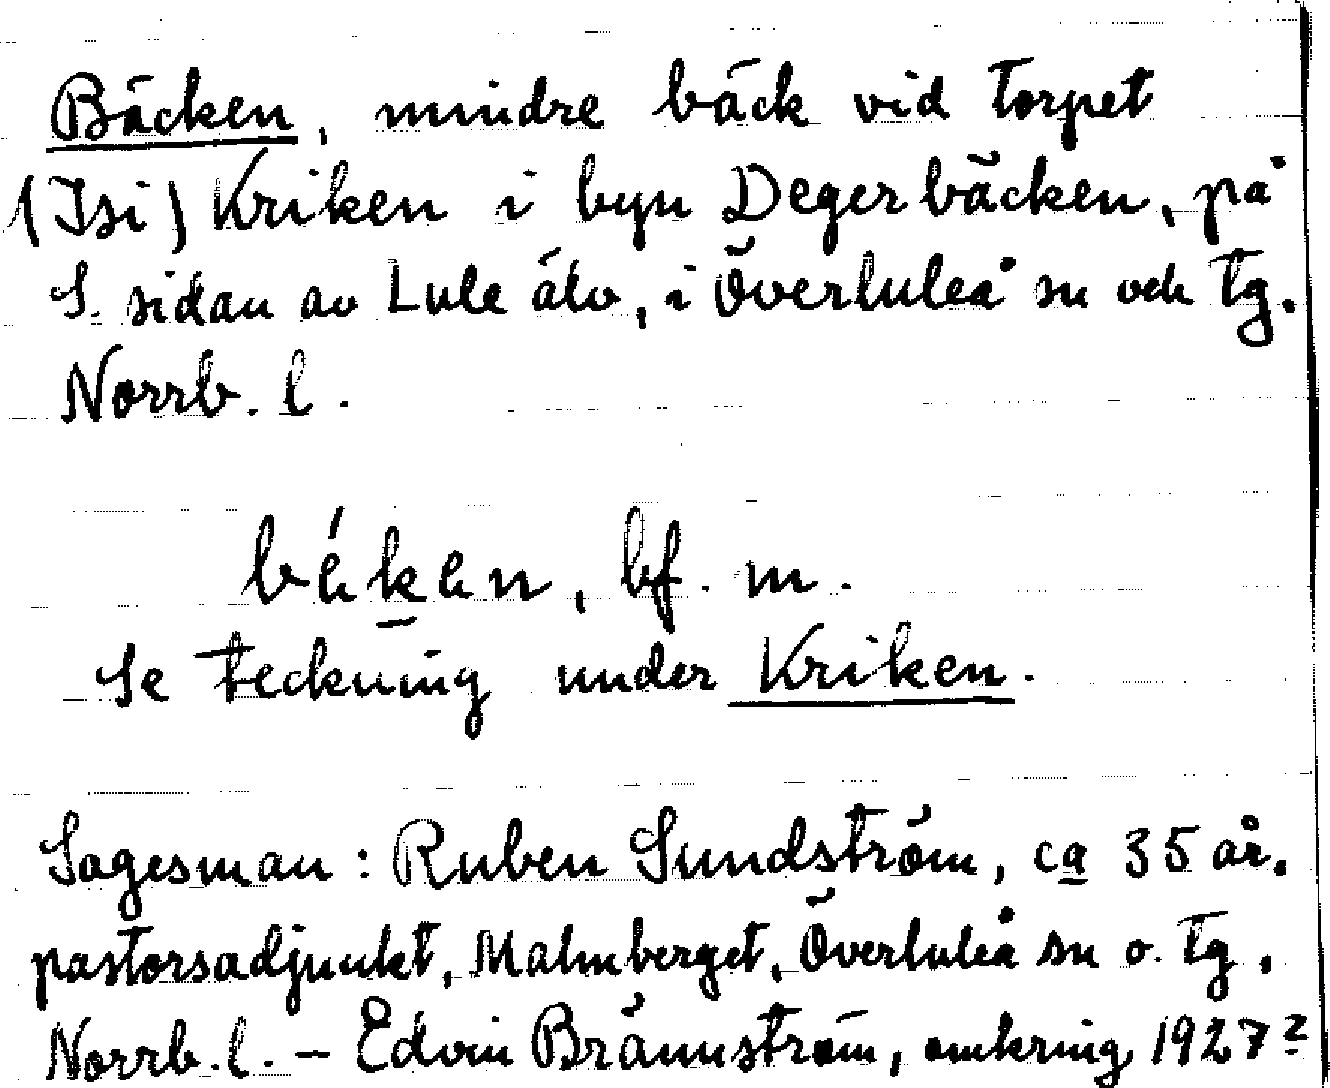 Bäcken, mindre bäck vid torpet
(Isi) Kriken i byn Degerbäcken, på
S. sidan av Lule älv, i Överluleå sn och tg.
Norrb. l.
béken, bf. m.
Se teckning under Kriken.
Sagesman: Ruben Sundström, ca 35 år.
pastorsadjunkt, Malmberget, Överluleå sn o. tg,
Norrb. l. – Edvin Brännström, omkring 1927?